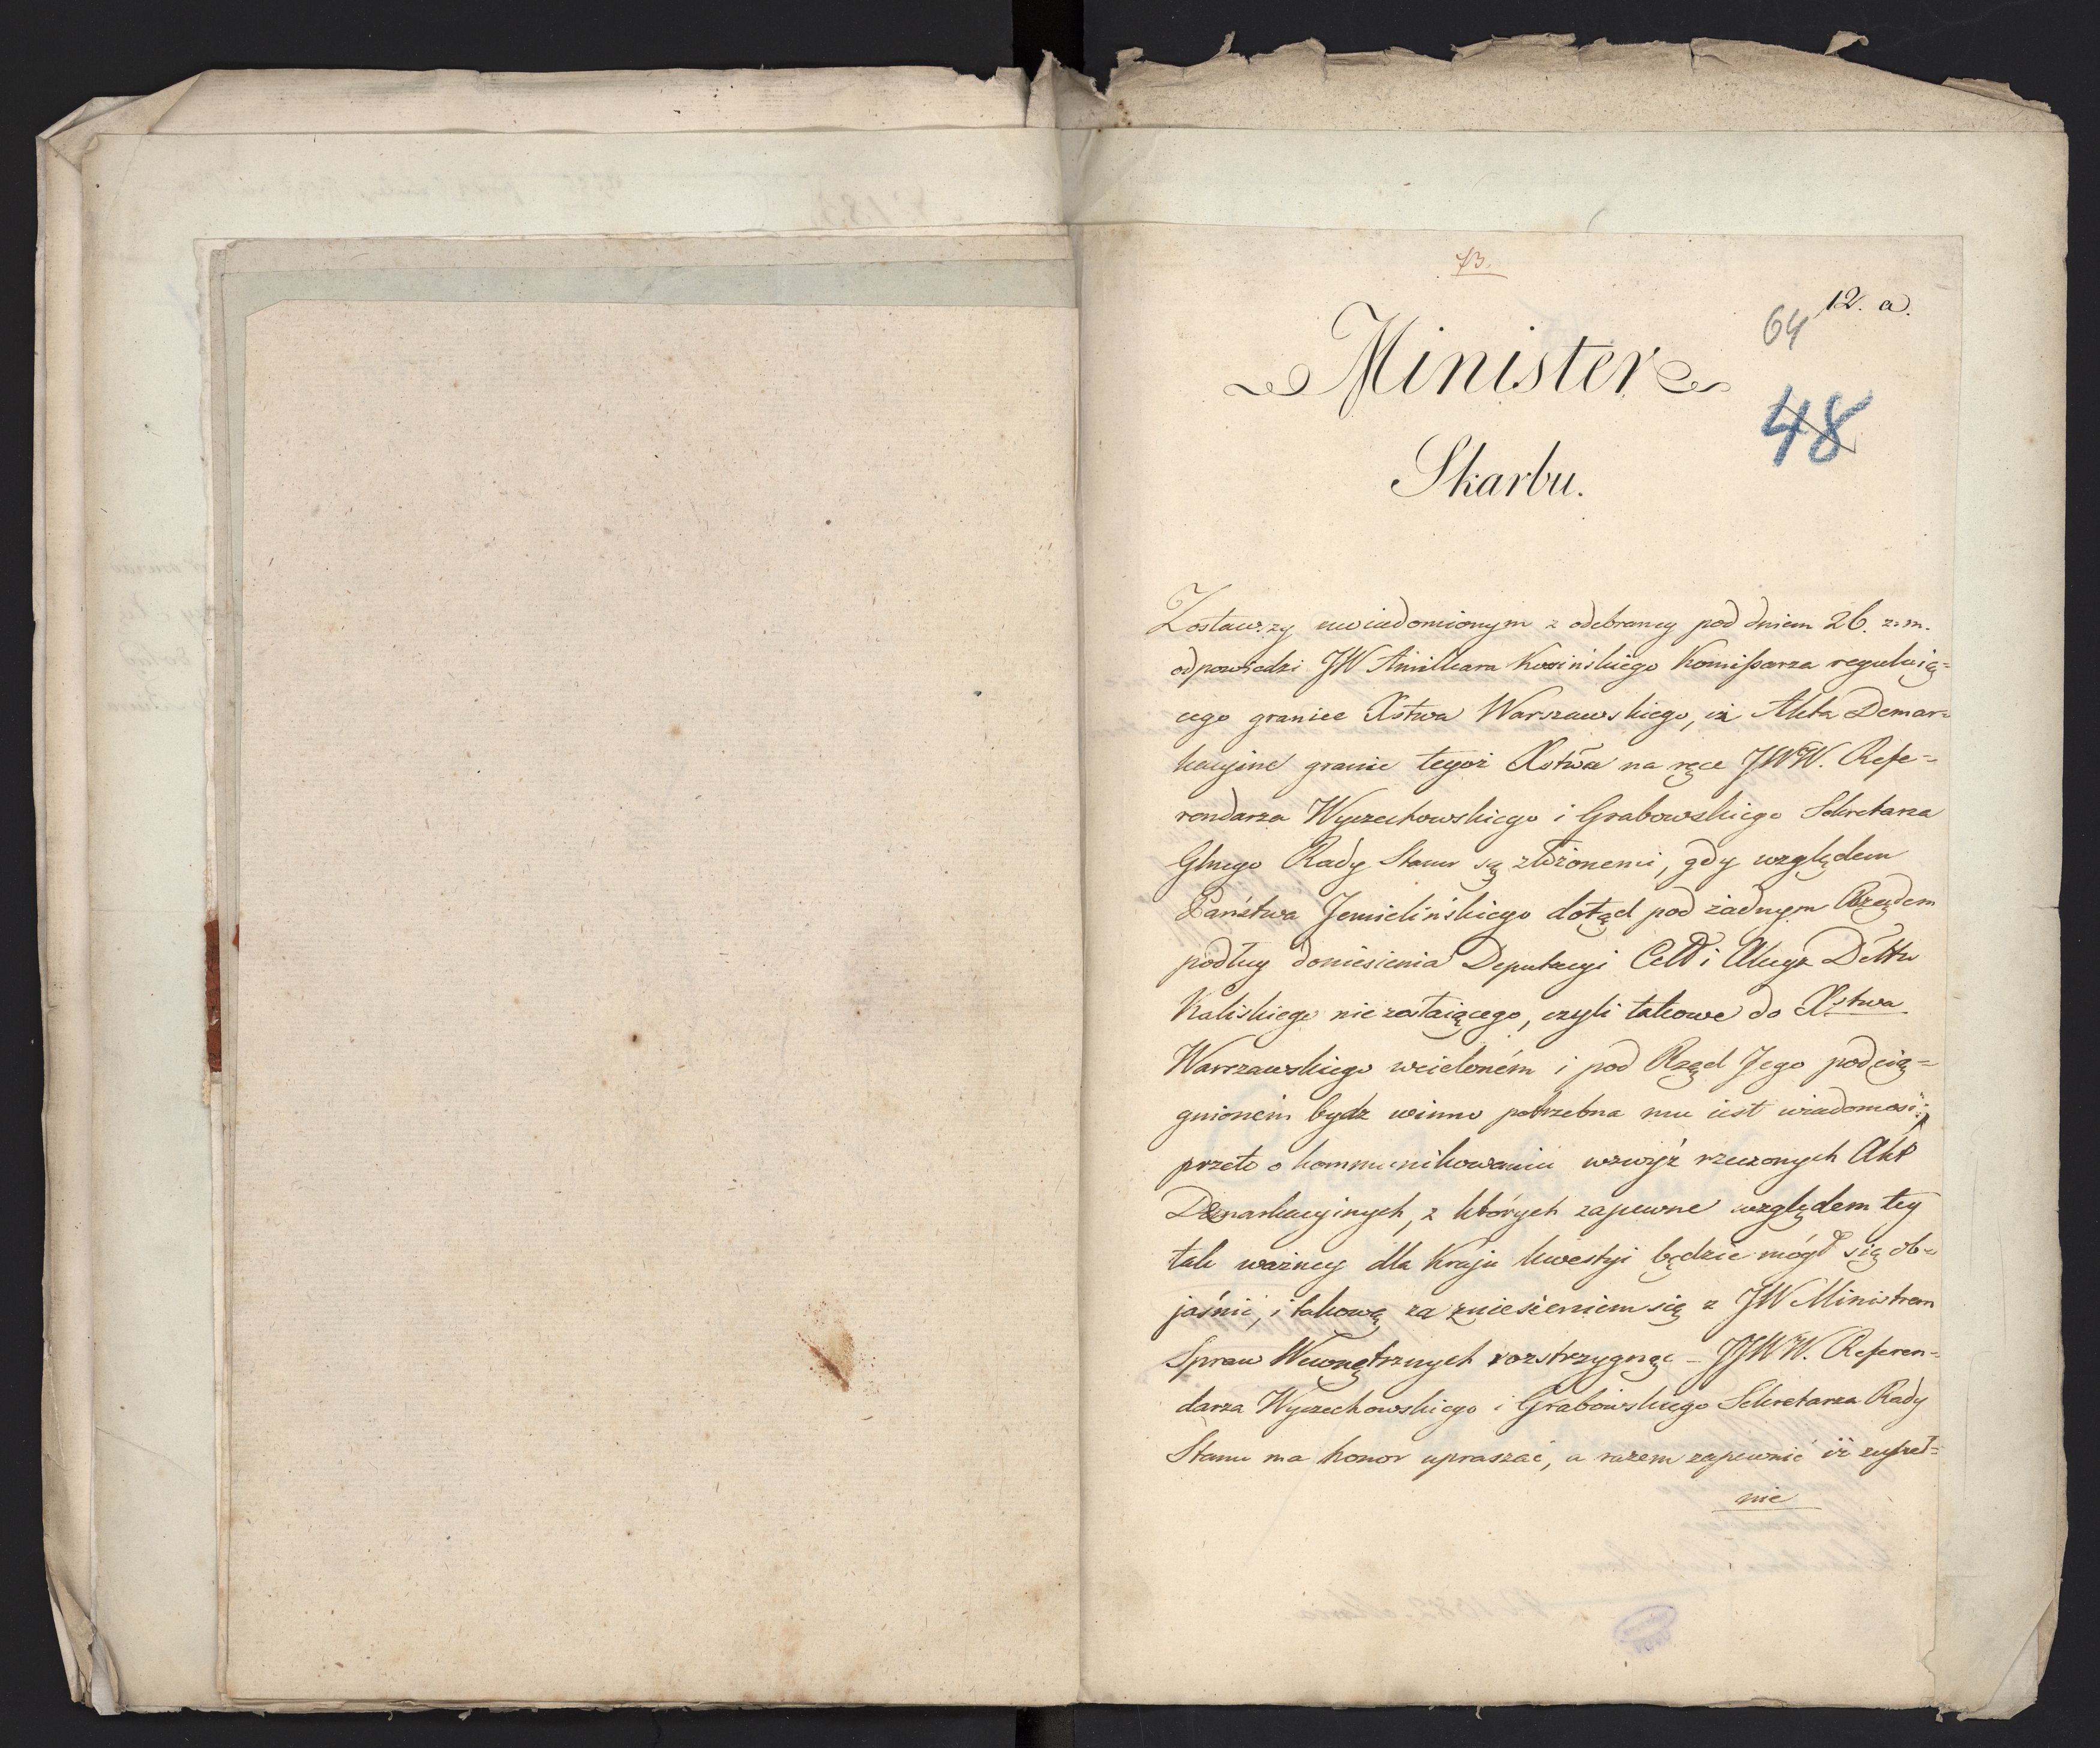 73.
12. a.
64
48
Minister
Skarbu.
Zostawszy uwiadomionym z odebraney pod dniem 26. z. m.
odpowiedzi JW Amilkara Kosińskiego Komissarza reguluią=
cego granice Xstwa Warszawskiego, iż Akta Demar=
kacyine granic tegoż Xstwa na ręce JWW. Refe=
rendarza Wyczechowskiego i Grabowskiego Sekretarza
Glnego Rady Stanu są złożonemi, gdy względem
Państwa Jemielińskiego dotąd pod żadnym Rządem
podług doniesienia Deputacyi Celł i Akcyz Dêttu
Kaliskiego nie zostaiącego, czyli takowe do Xstwa
Warszawskiego wcieloném i pod Rząd Jego podcią=
gnioném bydz winno potrzebna mu iest wiadomość;
przeto o kommunikowanie wzwyż rzeczonych Akt
Demarkacyinych, z których zapewne względem tey
tak ważney dla Kraju kwestyi będzie mógł się ob=
jaśnić, i takową za zniesieniem się z JW Ministrem
Spraw Wewnętrznych rozstrzygnąć – JJWW. Referen=
darza Wyczechowskiego i Grabowskiego Sekretarza Rady
Stanu ma honor upraszać, a razem zapewnić iż zupeł=
nie